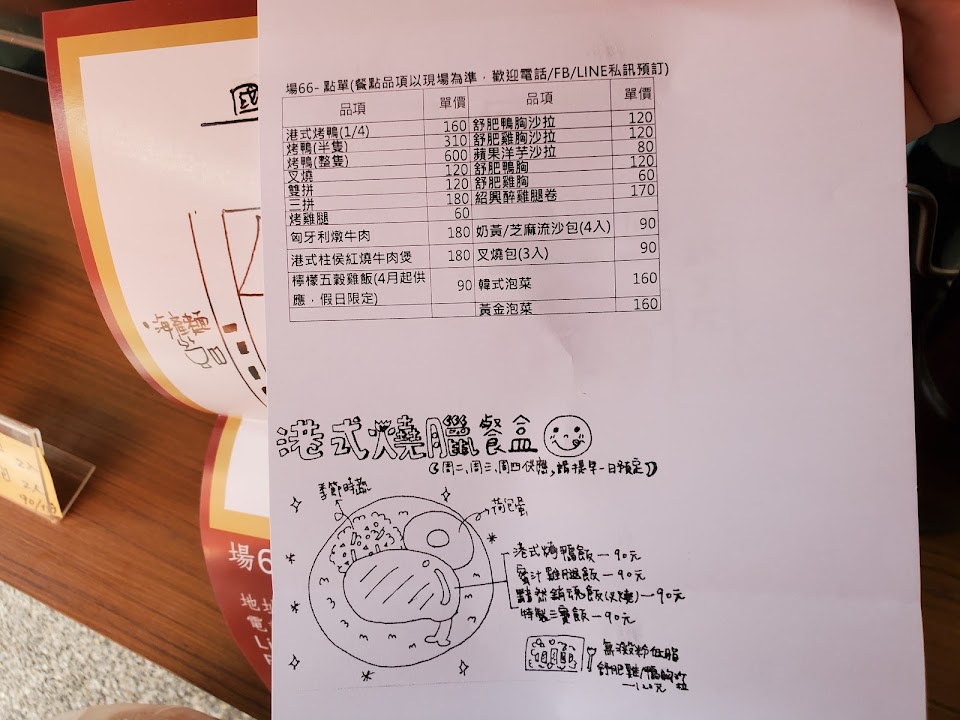 場66- 點單(餐點品項以現場為準，歡迎電話/FB/LINE私訊預訂)
品項 單價 品項 單價
港式烤鴨(1/4) 160 舒肥鴨胸沙拉 120
烤鴨(半隻) 310 舒肥雞胸沙拉 120
烤鴨(整隻) 600 蘋果洋芋沙拉 80
叉燒 120 舒肥鴨胸 120
雙拼 120 舒肥雞胸 60
三拼 180 紹興醉雞腿卷 170
烤雞腿 60
匈牙利燉牛肉 180 奶黃/芝麻流沙包(4入) 90
港式柱侯紅燒牛肉煲 180 叉燒包(3入) 90
檸檬五穀雞飯(4月起供應，假日限定) 90 韓式泡菜 160
黃金泡菜 160
港式燒臘餐盒
(周二、周三、周四供應，請提早一日預定)
季節時蔬
荷包蛋
港式燒鴨飯—90元
蜜汁雞腿飯—90元
黯然銷魂飯(叉燒)—90元
特製三寶飯—90元
無澱粉低脂
舒肥雞/鴨胸沙拉
—120元
國
海產麵
場6